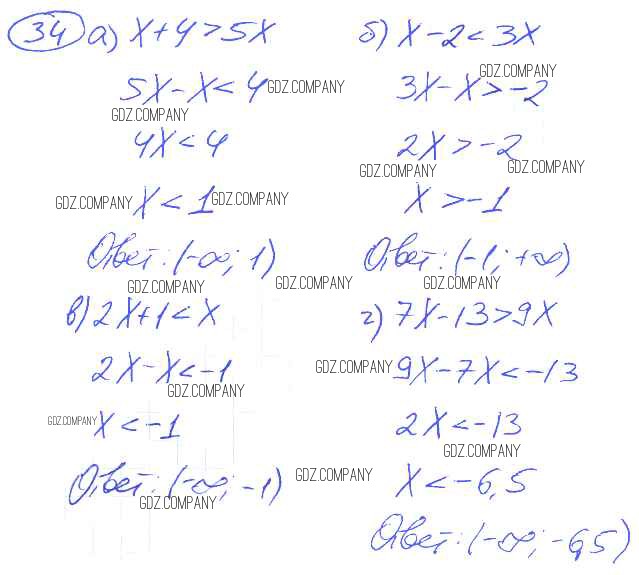 34 а) x+4>5x
5x-x<4 GDZ.COMPANY
GDZ.COMPANY
4x<4
GDZ.COMPANY x<1 GDZ.COMPANY
Ответ: (-∞; 1)
GDZ.COMPANY
б) x-2<3x
GDZ.COMPANY
3x-x>-2
2x>-2
GDZ.COMPANY GDZ.COMPANY
x>-1
Ответ: (-1; +∞)
GDZ.COMPANY GDZ.COMPANY
в) 2x+1<x
2x-x<-1
GDZ.COMPANY
GDZ.COMPANY x<-1
Ответ: (-∞; -1)
GDZ.COMPANY
г) 7x-13>9x
GDZ.COMPANY 9x-7x<-13
2x<-13
GDZ.COMPANY
GDZ.COMPANY x<-6,5
Ответ: (-∞; -6,5)